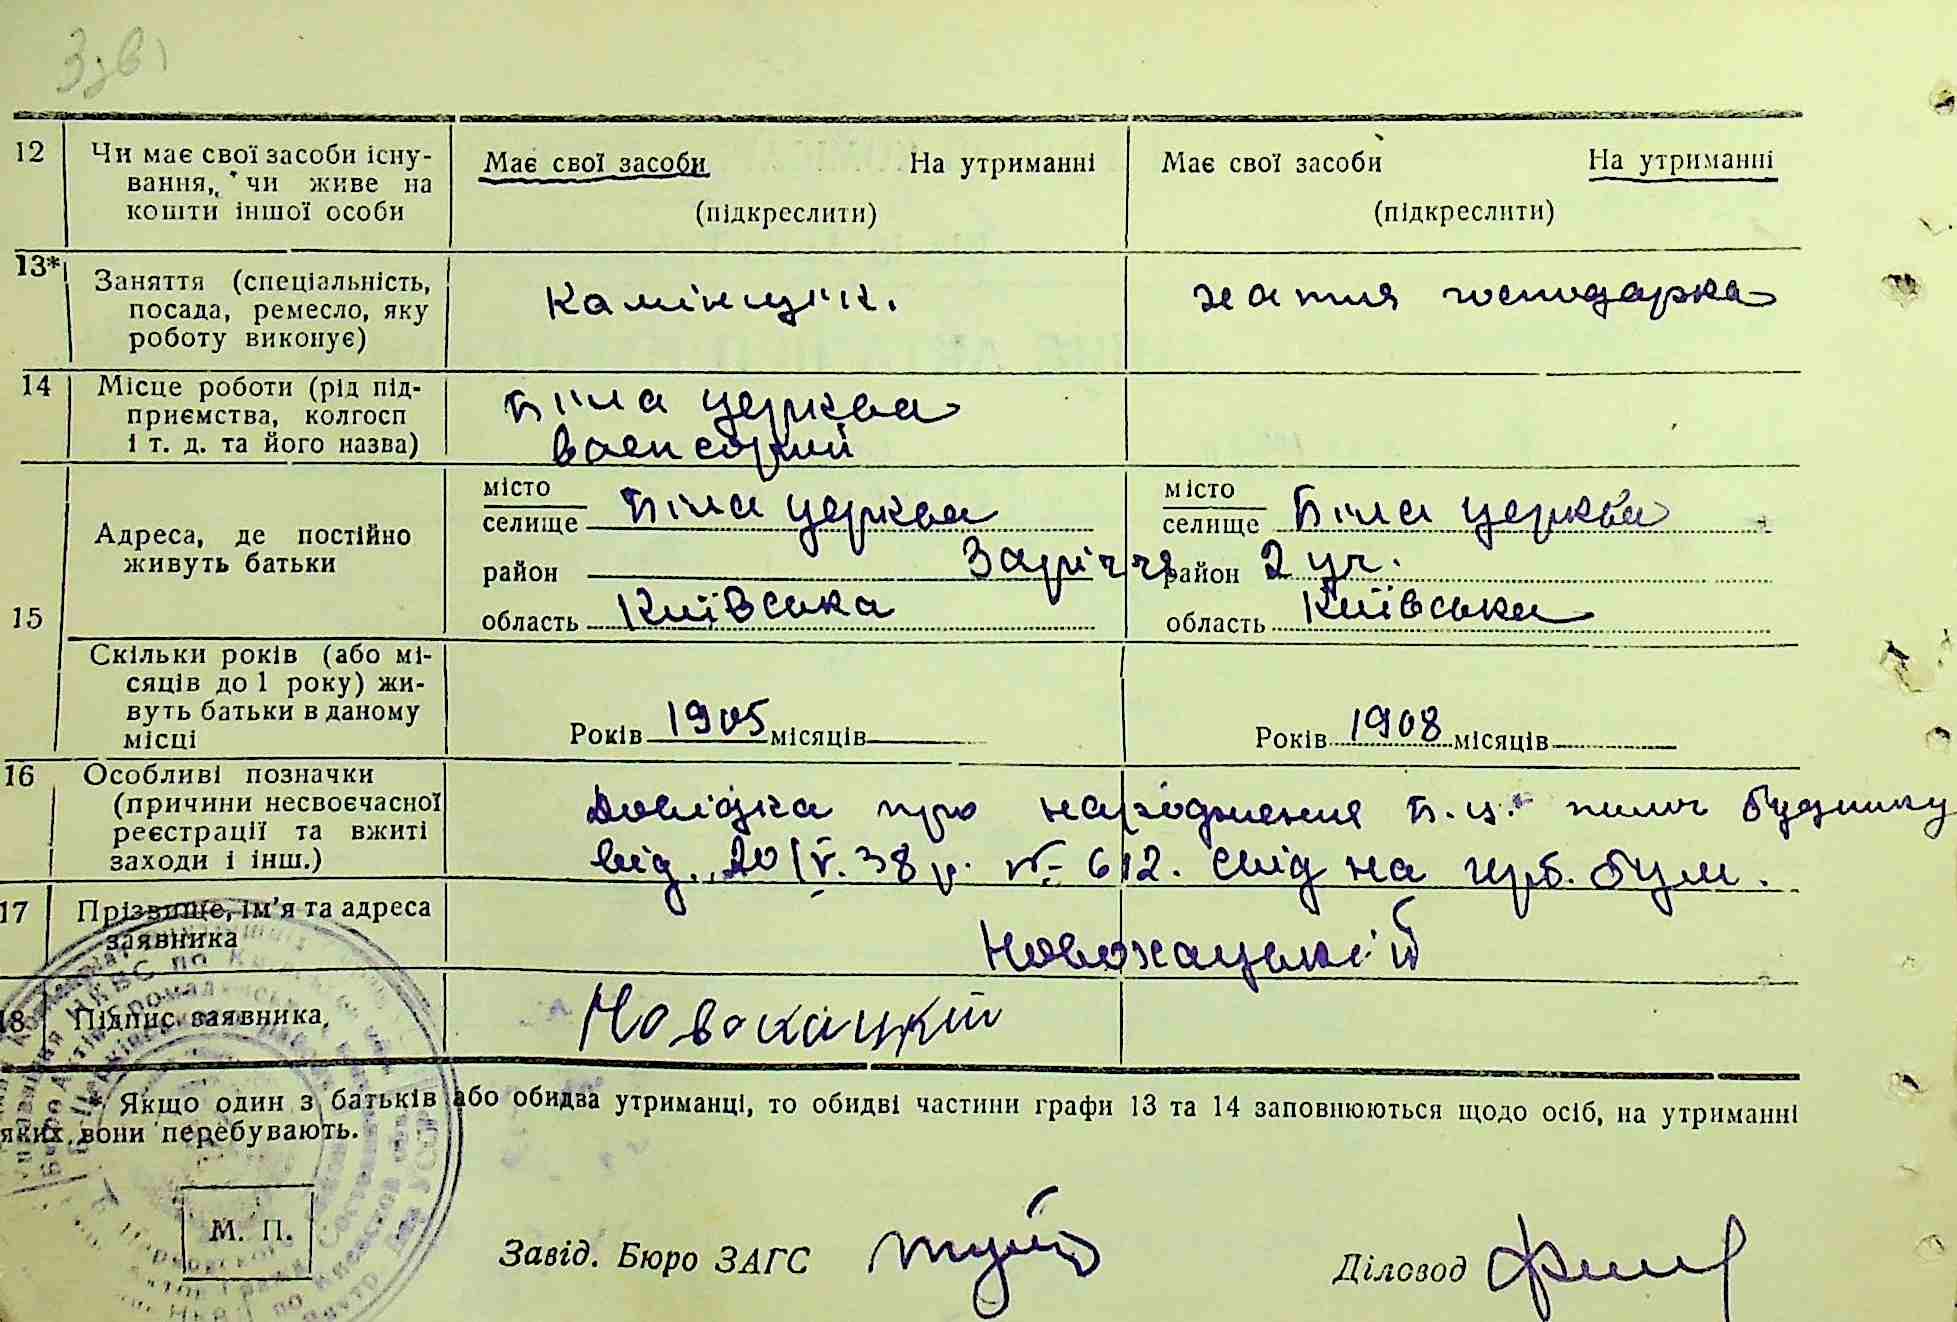 12 Чи має свої засоби існу-
вання, чи живе на
кошти іншої особи
Має свої засоби На утриманні
(підкреслити)
Має свої засоби На утриманні
(підкреслити)
13* Заняття (спеціальність,
посада, ремесло, яку
роботу виконує)
Камінщік.
хатня господарка
14 Місце роботи (рід під-
приємства, колгосп
і т. д. та його назва)
Біла церква
15 Адреса, де постійно
живуть батьки
місто
селище Біла церква
район Заріччя
область Київська
місто
селище Біла церква
район 2 уч.
область Київська
Скільки років (або мі-
сяців до 1 року) жи-
вуть батьки в даному
місці
Років 1905 місяців
Років 1908 місяців
16 Особливі позначки
(причини несвоєчасної
реєстрації та вжиті
заходи і інш.)
Довідка про народження Б.Ц. полог будинку
від. 20/V.38 р. № 612. слід на герб. бум.
17 Прізвище, ім'я та адреса
заявника
Новохацький
18 Підпис заявника
Новохацкій
* Якщо один з батьків або обидва утриманці, то обидві частини графи 13 та 14 заповнюються щодо осіб, на утриманні
яких вони перебувають.
М. П.
Завід. Бюро ЗАГС
Діловод